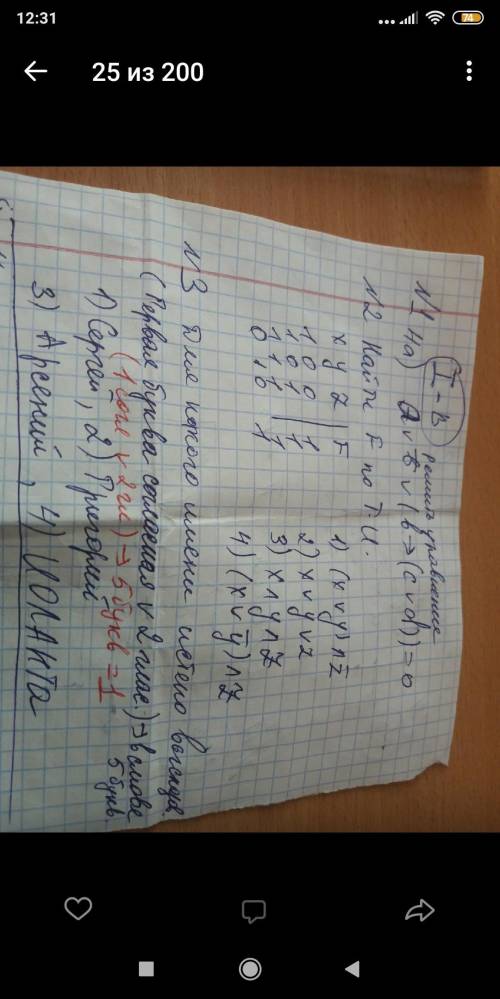 12:31
74
25 из 200
I-в Решить уравнение
№1 4а) a v b̅ v (b → (c v d)) = 0
№2 Найти F по Т.И.
x y z | F
1 0 0 | 1
1 0 1 | 1
1) (x v y) ∧ z̅
2) x v y v z
3) x ∧ y ∧ z̅
4) (x v y̅) ∧ z̅
№3 Для какого имени истено
(Первая буква согласная v 2 глас.) → в слове
5 букв.
(1 согл v 2 гл) → 5 букв = 1
1) Сергей, 2) Григорий
3) Арсений, 4) ИОЛАНТА